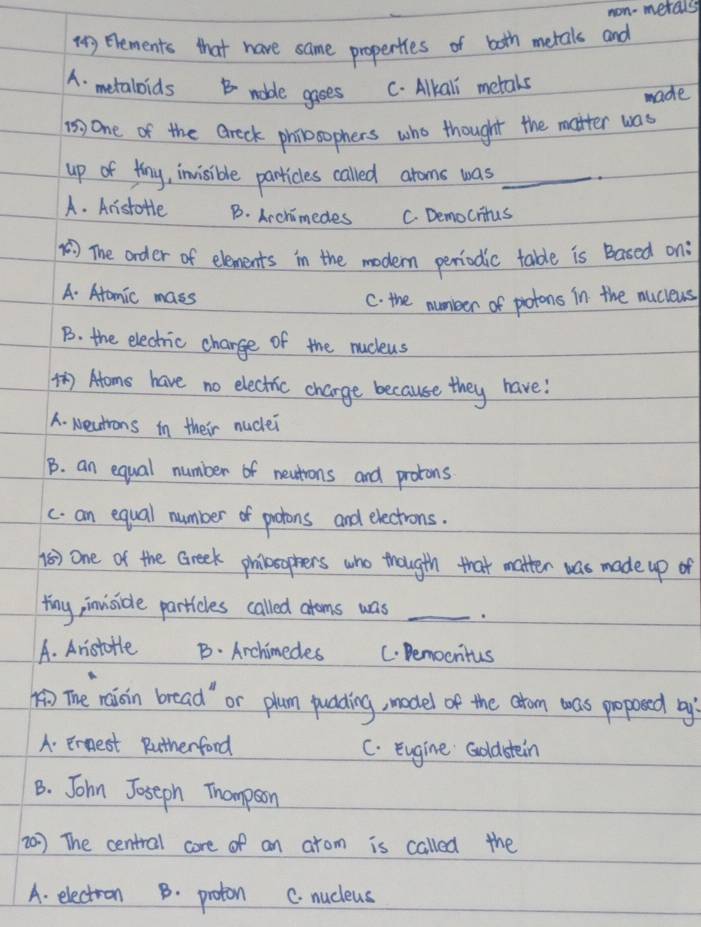 non-metals
14.) Elements that have same properties of both metals and
A. metaloids B. noble gases C. Alkali metals
made
15.) One of the Greek philosophers who thought the matter was
up of tiny, invisible particles called atoms was ______.
A. Aristotle B. Archimedes C. Democritus
16.) The order of elements in the modern periodic table is Based on:
A. Atomic mass C. the number of protons in the nucleus
B. the electric charge of the nucleus
17.) Atoms have no electric charge because they have:
A. Neutrons in their nuclei
B. an equal number of neutrons and protons.
C. an equal number of protons and electrons.
18.) One of the Greek philosophers who thougth that matter was made up of
tiny, invisible particles called atoms was ____.
A. Aristotle B. Archimedes C. Democritus
19.) The "raisin bread" or plum pudding, model of the atom was proposed by:
A. Ernest Rutherford C. Eugine Goldstein
B. John Joseph Thompson
20.) The central core of an atom is called the
A. electron B. proton C. nucleus